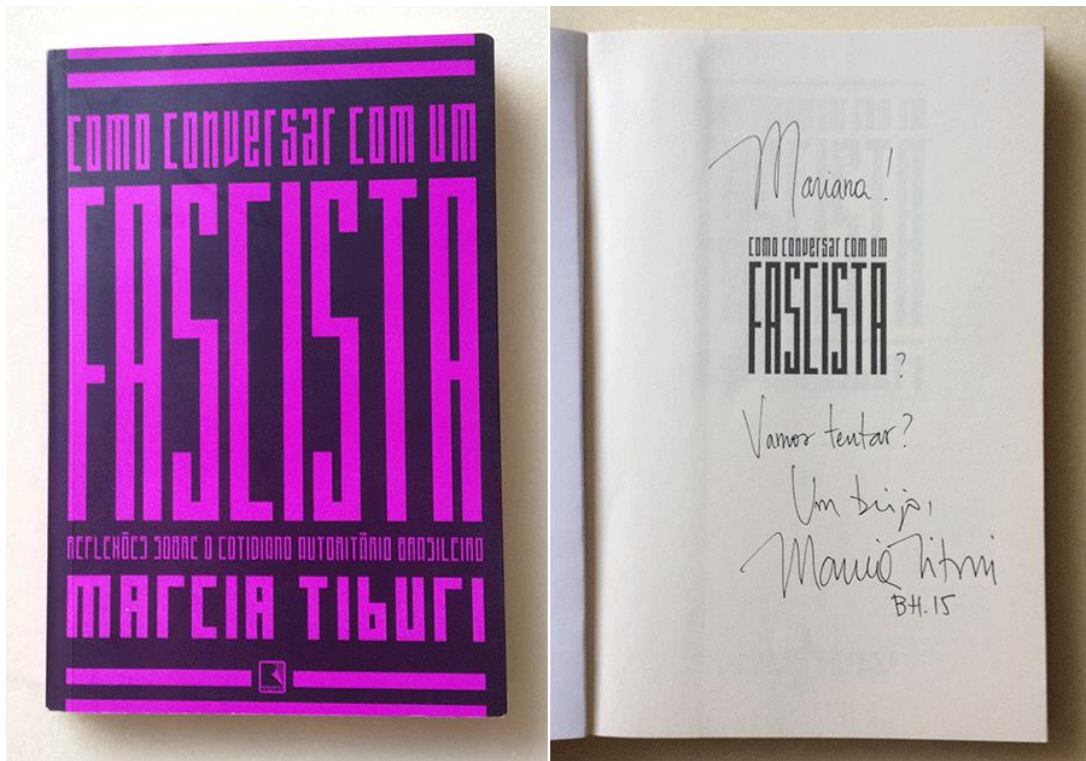 como conversar com um
FASCISTA
REFLEXÕES SOBRE O COTIDIANO AUTORITÁRIO BRASILEIRO
marcia tiburi
Mariana!
como conversar com um
FASCISTA?
Vamos tentar?
Um beijo,
Marcia Tiburi
BH.15